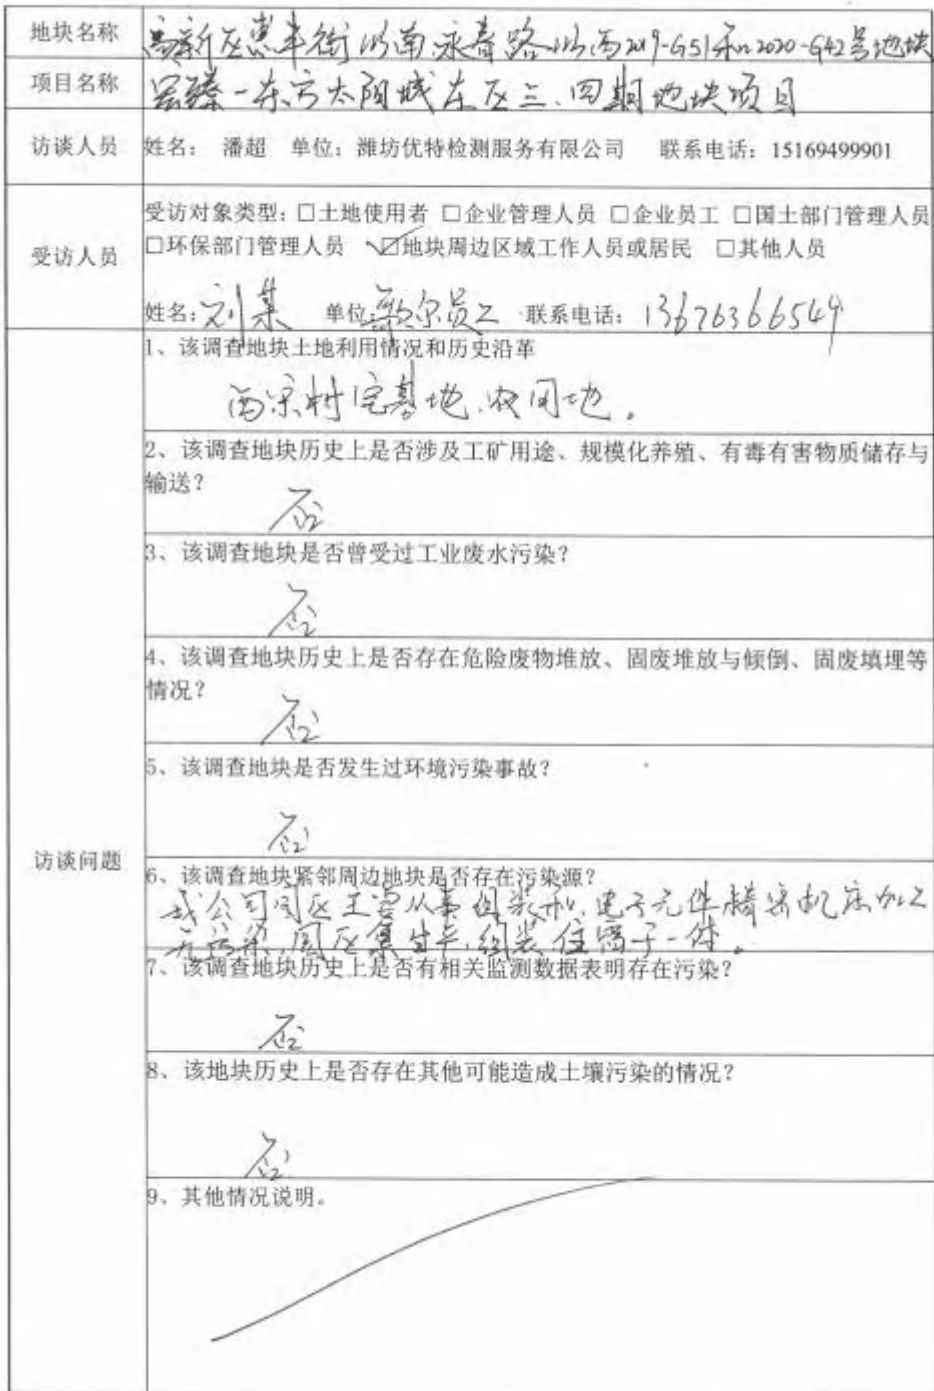 地块名称 高新区惠丰街以南永春路以西2019-G51和2020-G42号地块
项目名称 -东方太阳城东区三、四期地块项目
访谈人员 姓名: 潘超 单位:潍坊优特检测服务有限公司 联系电话:15169499901
受访对象类型:□土地使用者 □企业管理人员 □企业员工 □国土部门管理人员
□环保部门管理人员 ☑地块周边区域工作人员或居民 □其他人员
受访人员
姓名:刘某 单位 歌尔员工 联系电话:13676366549
1、该调查地块土地利用情况和历史沿革
西宋村宅基地、农用地。
2、该调查地块历史上是否涉及工矿用途、规模化养殖、有毒有害物质储存与
输送?
否
3、该调查地块是否曾受过工业废水污染?
否
4、该调查地块历史上是否存在危险废物堆放、固废堆放与倾倒、固废填埋等
情况?
否
5、该调查地块是否发生过环境污染事故?
否
访谈问题
6、该调查地块紧邻周边地块是否存在污染源?
我公司园区主要从事组装和电子元件精密机床加工
无污染,园区集生产,组装,住宿于一体。
7、该调查地块历史上是否有相关监测数据表明存在污染?
否
8、该地块历史上是否存在其他可能造成土壤污染的情况?
否
9、其他情况说明。